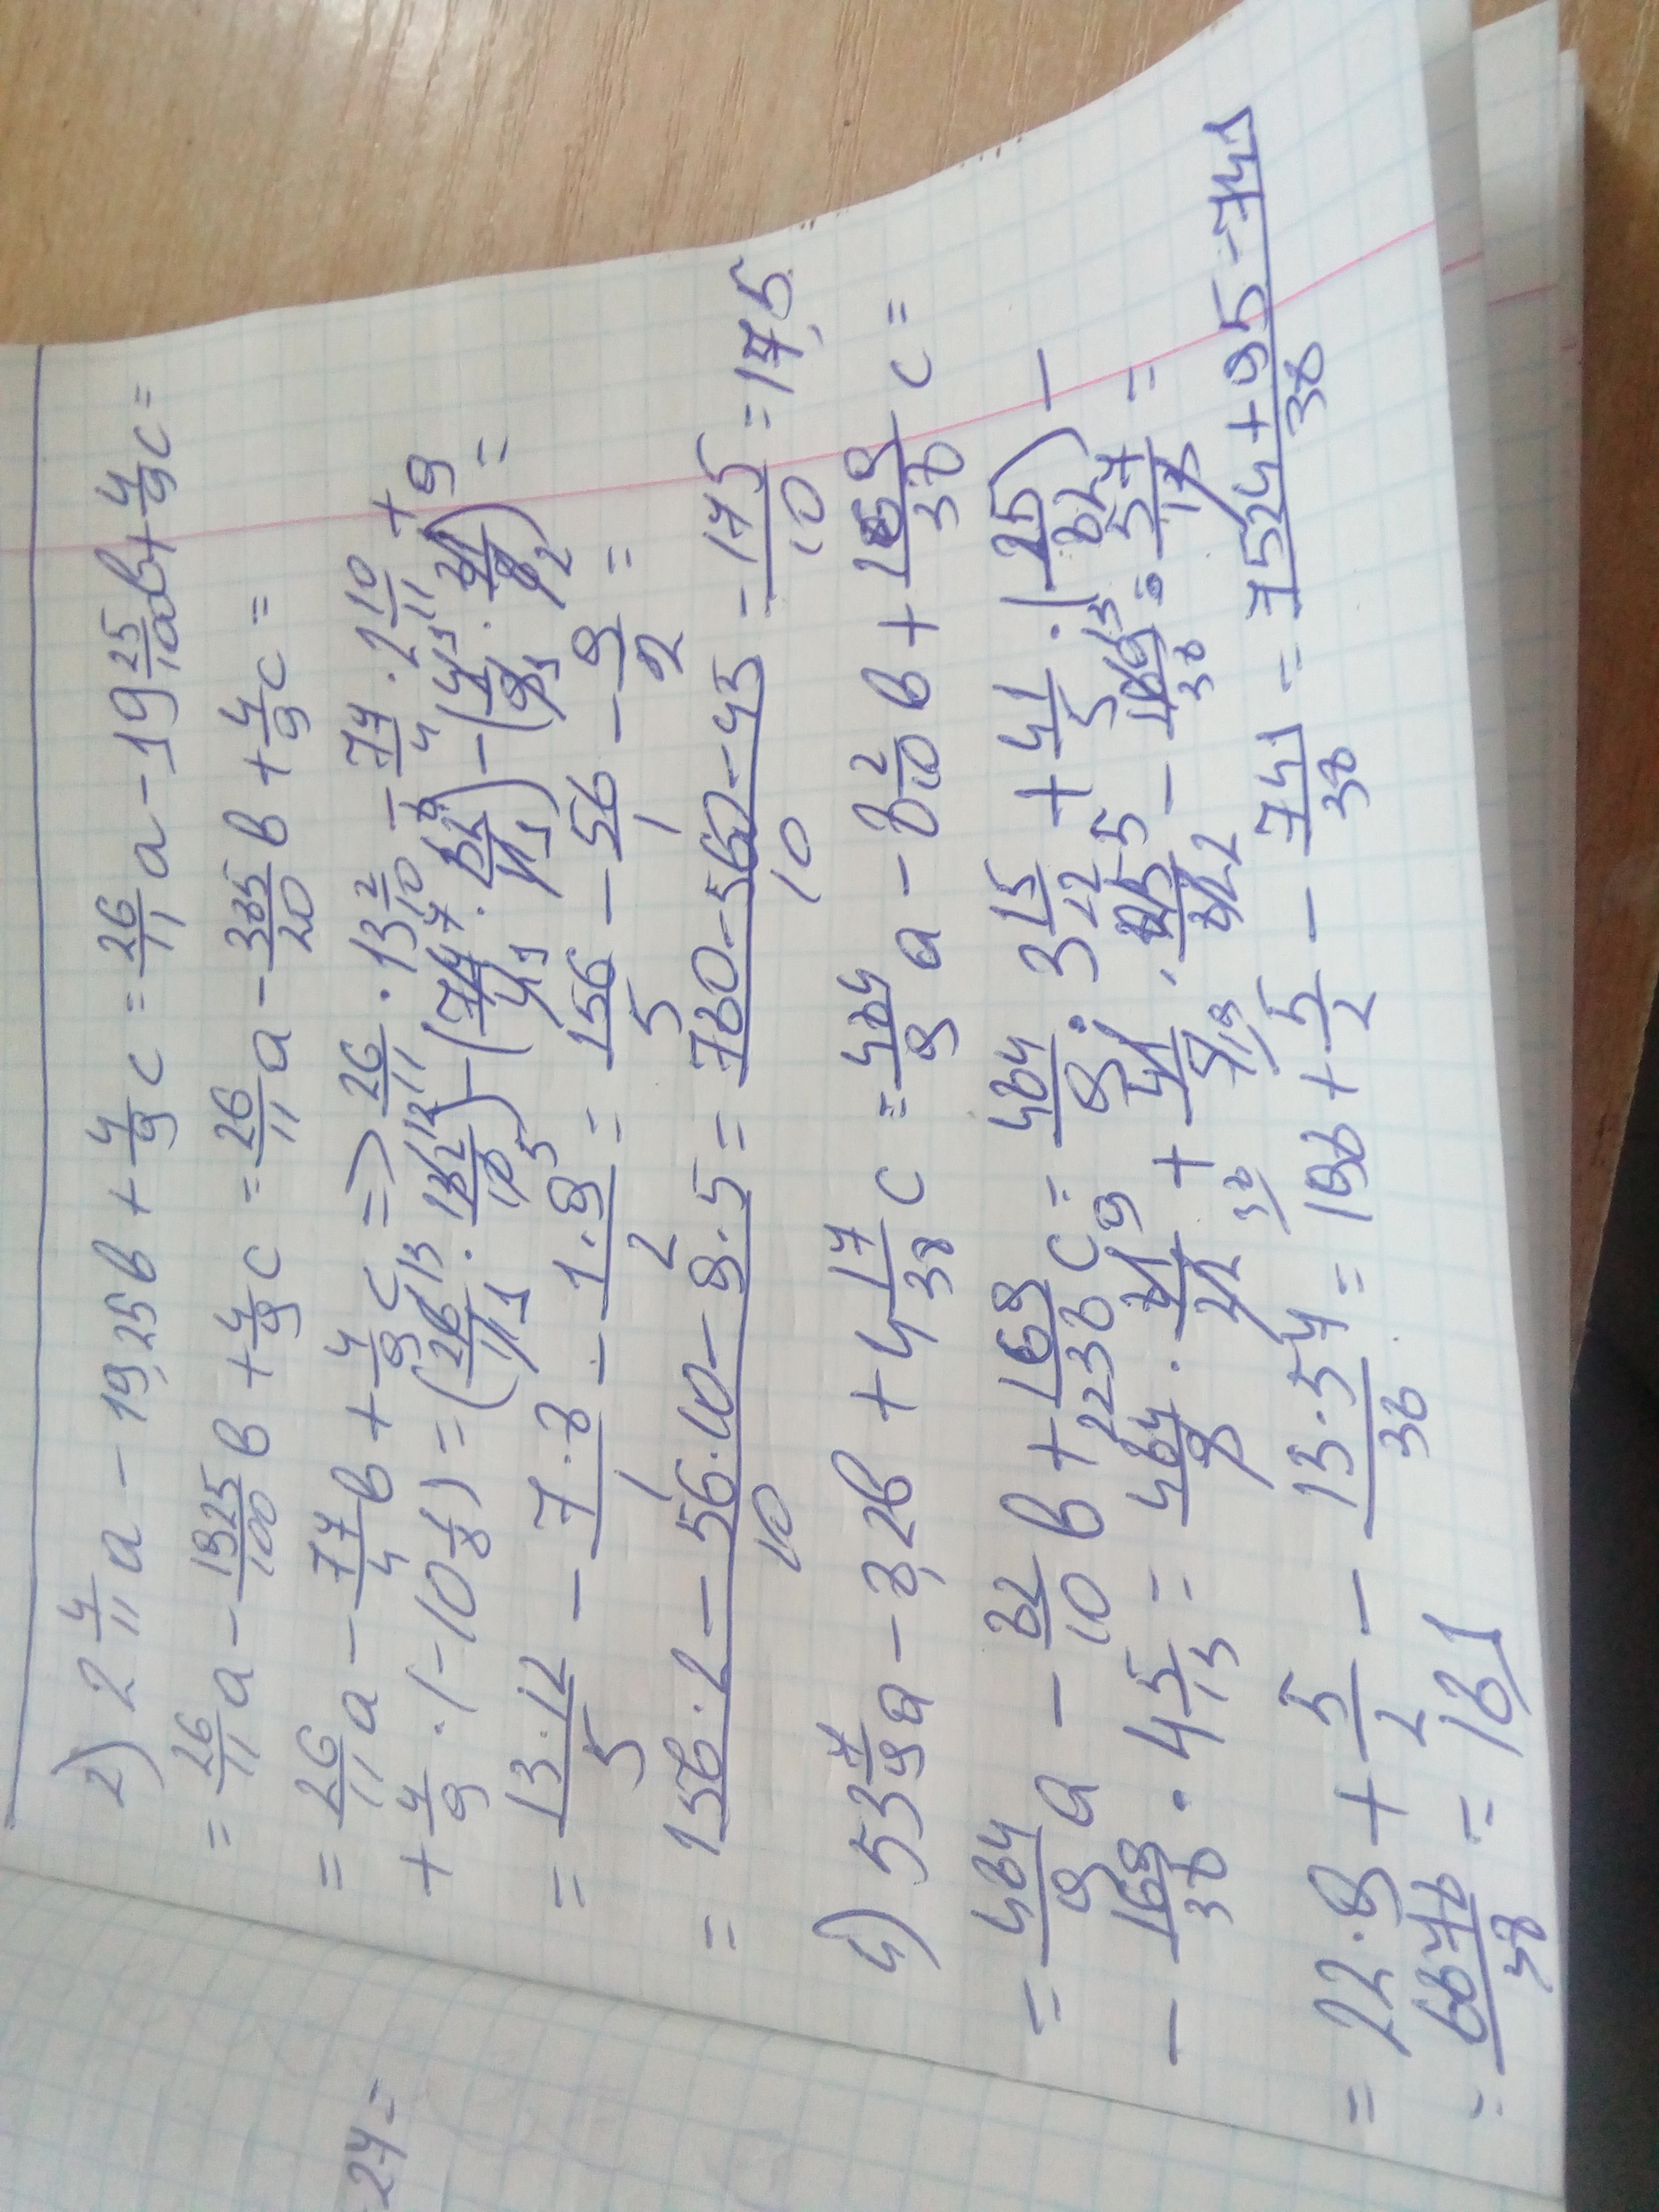 2) 2 4/11 a - 19,25в + 4/9 c = 26/11 a - 19 25/100 в + 4/9 c =
= 26/11 a - 1925/100 в + 4/9 c = 26/11 a - 385/20 в + 4/9 c =
= 26/11 a - 77/4 в + 4/9 c => 26/11 · 13 2/10 - 77/4 · 2 10/11 +
+ 4/9 · (-10 1/8) = (26/11 · 132/10) - (77/4 · 32/11) - (4/9 · 81/8) =
= 13·12/5 - 7·8/1 - 1·9/2 = 156/5 - 56/1 - 9/2 =
= 156·2 - 56·10 - 9·5/10 = 780-560-45/10 = 175/10 = 17,5
4) 53 7/9 a - 8,2в + 4 17/38 c = 484/9 a - 8 2/10 в + 169/38 c =
= 484/9 a - 82/10 в + 169/38 c = 484/9 · 3 15/22 + 41/5 · (25/82) -
- 169/38 · 4 5/13 = 484/9 · 81/22 + 41/5 · 25/82 - 169/38 · 57/13 =
= 22·9 + 5/2 - 13·57/38 = 198 + 5/2 - 741/38 = 7524+95-741/38
= 6878/38 = 181
27=